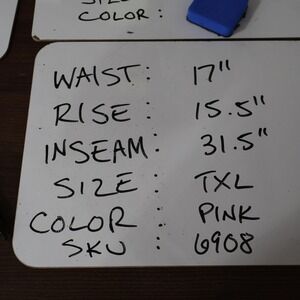 COLOR:
WAIST: 17"
RISE: 15.5"
INSEAM: 31.5"
SIZE: TXL
COLOR: PINK
SKU: 6908